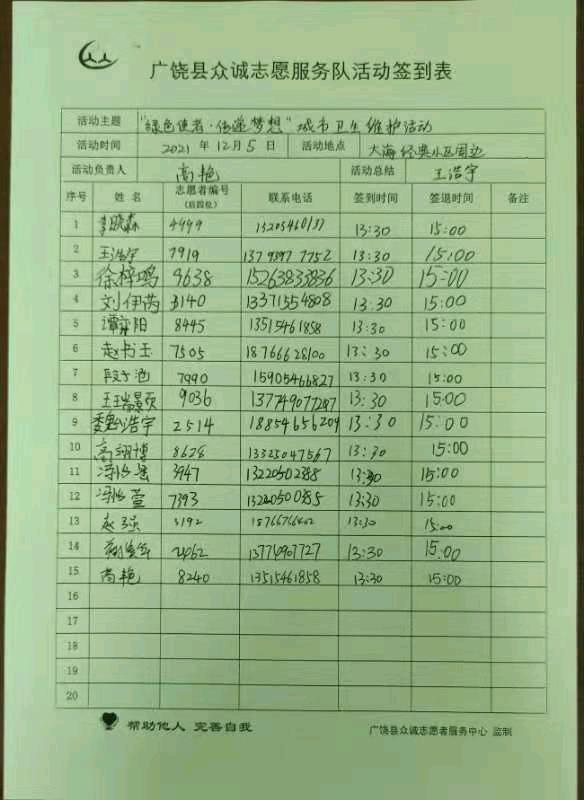 广饶县众诚志愿服务队活动签到表
活动主题 "绿色使者·传递梦想"城市卫生维护活动
活动时间 2021年12月5日 活动地点 大海经典小区周边
活动负责人 高艳 活动总结 王浩宇
序号 姓名 志愿者编号(后四位) 联系电话 签到时间 签退时间 备注
1 李晓森 4499 13:30 15:00
2 王浩宇 7919 13:30 15:00
3 徐梓鸣 9638 15263833836 13:30 15:00
4 刘伊芮 3140 13371554808 13:30 15:00
5 阳 8445 13515461858 13:30 15:00
6 赵书玉 7505 18766628100 13:30 15:00
7 7990 15905466827 13:30 15:00
8 9036 13:30 15:00
9 魏浩宇 2514 18854656204 13:30 15:00
10 高翊博 13325047567 13:30 15:00
11 3947 13:30 15:00
12 萱 7393 13:30 15:00
13 赵 13:30 15:00
14 13:30 15:00
15 高艳 8240 13515461858 13:30 15:00
16
17
18
19
20
帮助他人 完善自我 广饶县众诚志愿者服务中心 监制